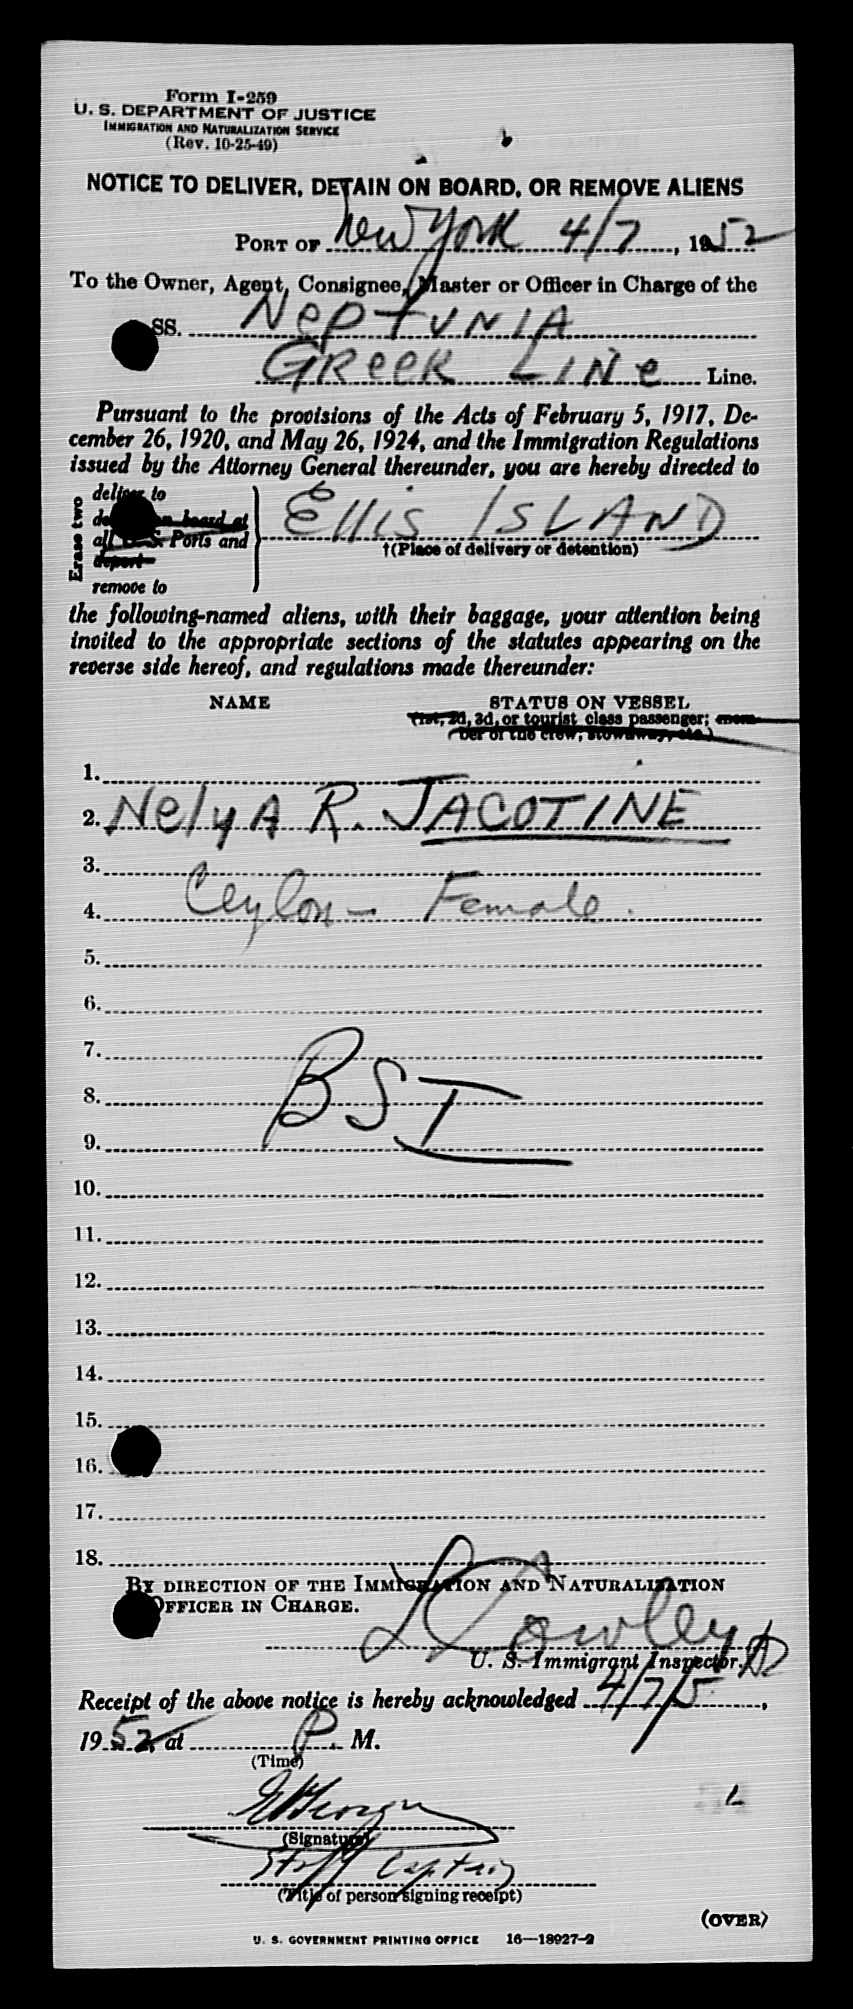 Form I-259
U. S. DEPARTMENT OF JUSTICE
IMMIGRATION AND NATURALIZATION SERVICE
(Rev. 10-25-49)
NOTICE TO DELIVER, DETAIN ON BOARD, OR REMOVE ALIENS
PORT OF New York 4/7, 1952
To the Owner, Agent, Consignee, Master or Officer in Charge of the
SS. NepTUNIA
GReeK LINe Line.
Pursuant to the provisions of the Acts of February 5, 1917, De-
cember 26, 1920, and May 26, 1924, and the Immigration Regulations
issued by the Attorney General thereunder, you are hereby directed to
Erase two
deliver to
on board at
all U. S. Ports and
deport
remove to
Ellis ISLAND
†(Place of delivery or detention)
the following-named aliens, with their baggage, your attention being
invited to the appropriate sections of the statutes appearing on the
reverse side hereof, and regulations made thereunder:
NAME STATUS ON VESSEL
(1st, 2d, 3d, or tourist class passenger; mem-
ber of the crew, stowaway, etc.)
1.
2. NelyA R. JACOTINE
3.
4. Ceylon - Female.
5.
6.
7.
8. BSI
9.
10.
11.
12.
13.
14.
15.
16.
17.
18.
BY DIRECTION OF THE IMMIGRATION AND NATURALIZATION
OFFICER IN CHARGE.
Cowley
U. S. Immigrant Inspector.
Receipt of the above notice is hereby acknowledged 4/7/5,
1952, at P. M.
(Time)
(Signature)
Staff Captain
(Title of person signing receipt)
(OVER)
U. S. GOVERNMENT PRINTING OFFICE 16—18927-2